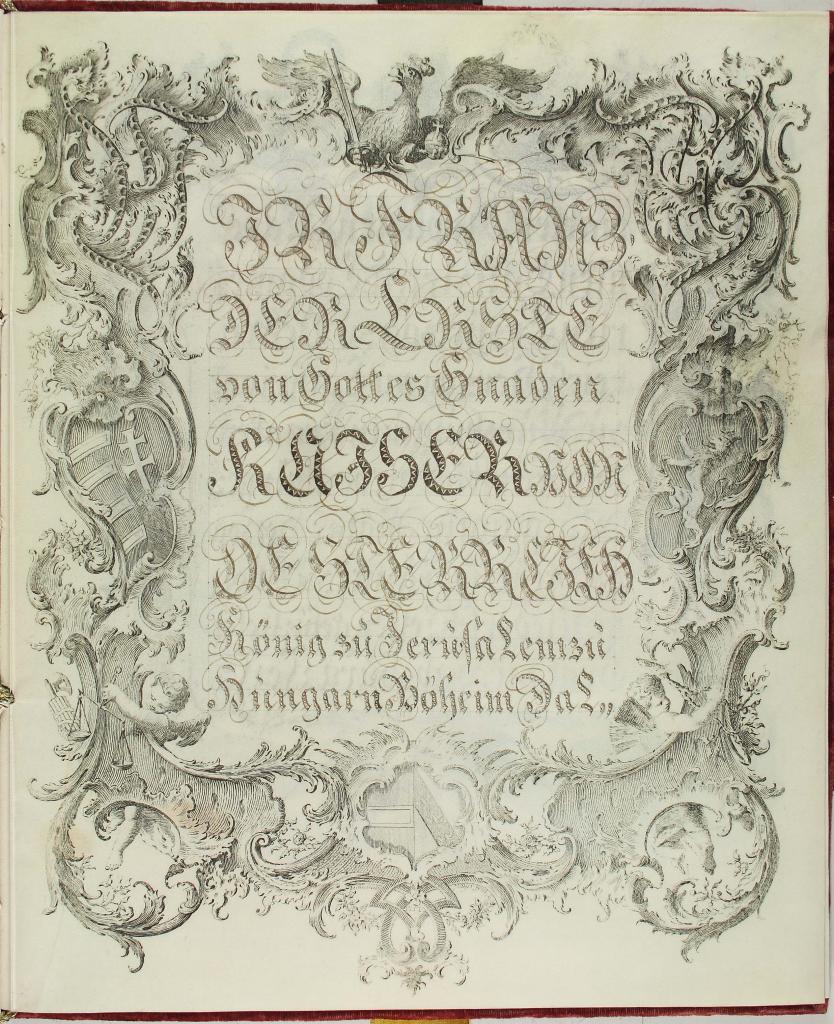 IR FRANZ
DER ERSTE
von Gottes Gnaden
KAISER VON
OESTERREICH
König zu Jerusalem zu
Hungarn Böheim Dal„